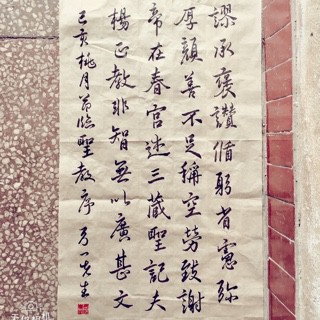 謬承褒讚循躬省慮彌
厚顏善不足稱空勞致謝
帝在春宮述三藏聖記夫
楊正教非智無以廣其文
己亥桃月節臨聖教序